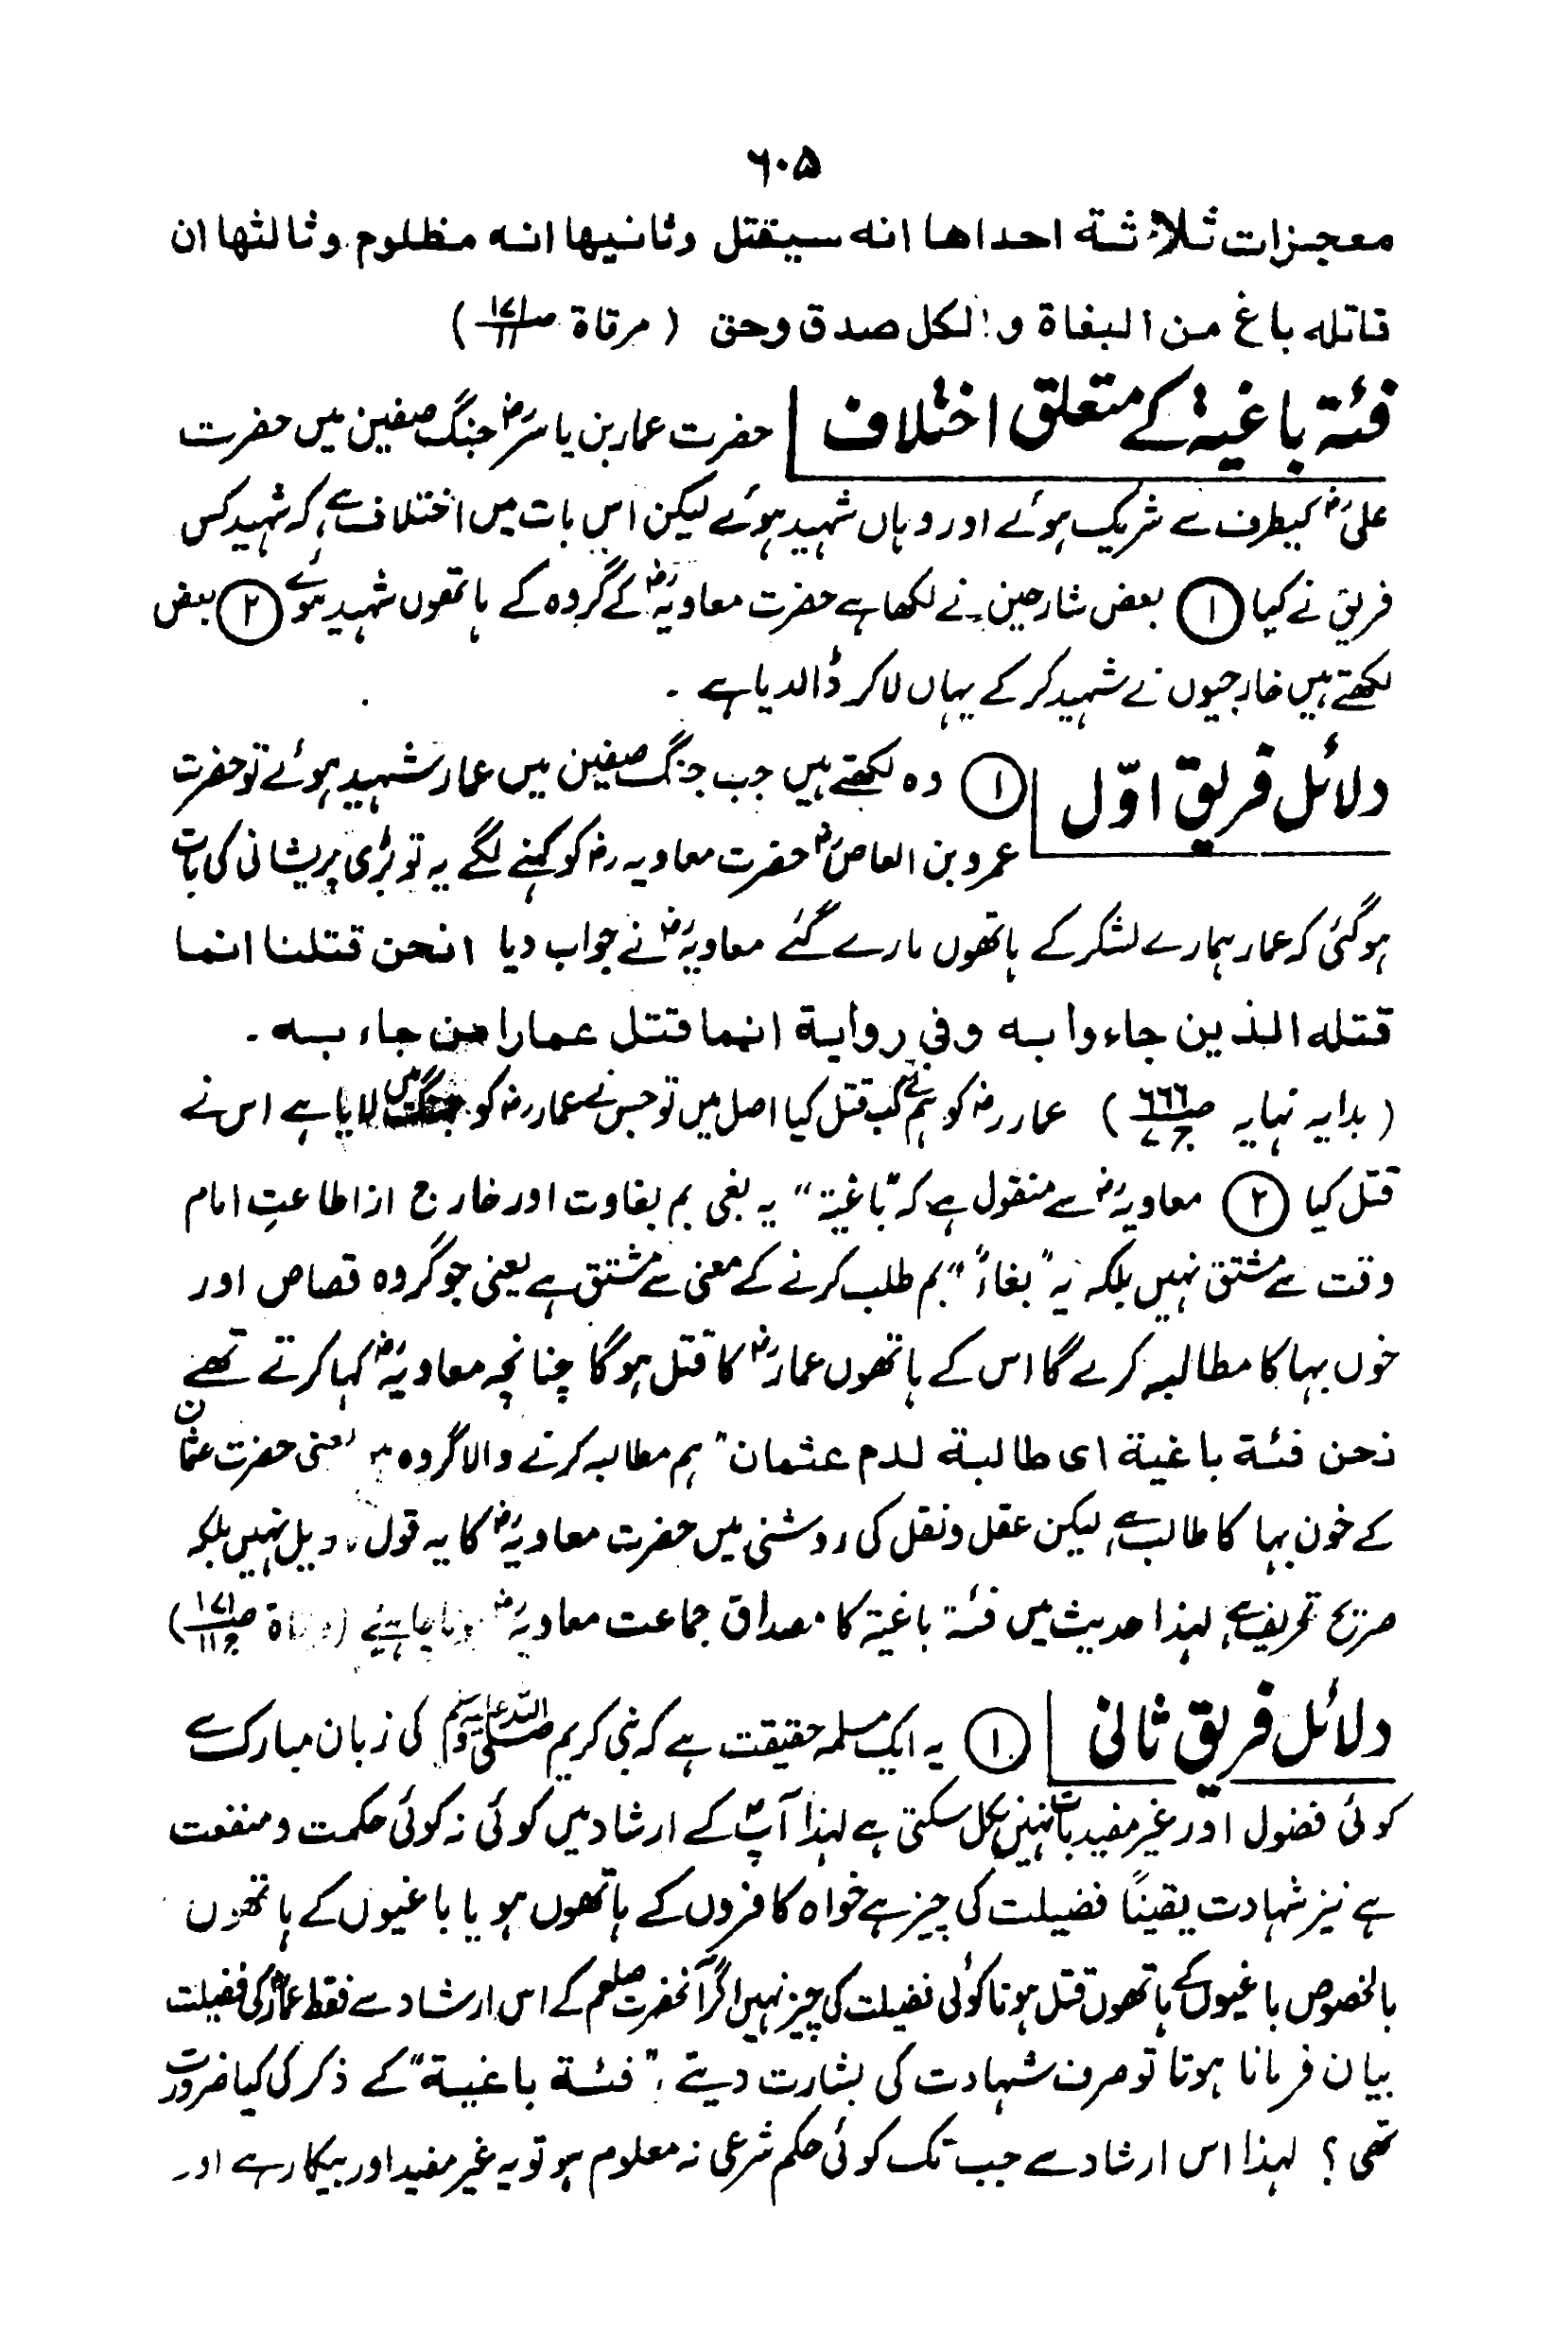 ۶۰۵
معجزات ثلاثة احداها انه سيقتل وثانيها انه مظلوم وثالثها ان
قاتله باغ من البغاة والكل صدق وحق ( مرقاة ص۱۷۱/۱۱ )
فئۃ باغیۃ کے متعلق اختلاف | حضرت عمار بن یاسرؓ جنگ صفین میں حضرت
علیؓ کیطرف سے شریک ہوئے اور وہاں شہید ہوئے لیکن اس بات میں اختلاف ہے کہ شہید کس
فریق نے کیا ① بعض شارحین نے لکھا ہے حضرت معاویہؓ کے گروہ کے ہاتھوں شہید ہوئے ② بعض
لکھتے ہیں خارجیوں نے شہید کر کے یہاں لا کر ڈالدیا ہے ۔
دلائل فریق اوّل | ① وہ لکھتے ہیں جب جنگ صفین میں عمار شہید ہوئے تو حضرت
عمرو بن العاصؓ حضرت معاویہ رض کو کہنے لگے یہ تو بڑی پریشانی کی بات
ہو گئی کہ عمار ہمارے لشکر کے ہاتھوں مارے گئے معاویہؓ نے جواب دیا انحن قتلنا انما
قتله الذين جاءوا به وفی رواية انما قتل عمارا من جاء به ۔
( بدایہ نہایہ ص۶۶۶/ج۷ ) عمار رض کو ہم نے کب قتل کیا اصل میں تو جس نے عمار رض کو جنگ میں لایا ہے اس نے
قتل کیا ② معاویہؓ سے منقول ہے کہ "باغیۃ" یہ بغی بم بغاوت اور خارج از اطاعتِ امام
وقت سے مشتق نہیں بلکہ یہ "بغاءً" بم طلب کرنے کے معنی سے مشتق ہے یعنی جو گروہ قصاص اور
خوں بہا کا مطالبہ کرے گا اس کے ہاتھوں عمارؓ کا قتل ہو گا چنانچہ معاویہؓ کہا کرتے تھے
نحن فئة باغية ای طالبة لدم عثمان" ہم مطالبہ کرنے والا گروہ یعنی حضرت عثمان
کے خون بہا کا طالب ہے لیکن عقل و نقل کی روشنی میں حضرت معاویہؓ کا یہ قول نہیں بلکہ
صریح تحریف ہے لہذا حدیث میں فئۃ باغیۃ کا مصداق جماعت معاویہؓ ہونا چاہئے ( ص۱۷۱/ج۱۱ )
دلائل فریق ثانی | ① یہ ایک مسلمہ حقیقت ہے کہ نبی کریم صلی اللہ علیہ وسلم کی زبان مبارک سے
کوئی فضول اور غیر مفید بات نہیں نکل سکتی ہے لہذا آپؐ کے ارشاد میں کوئی نہ کوئی حکمت و منفعت
ہے نیز شہادت یقیناً فضیلت کی چیز ہے خواہ کافروں کے ہاتھوں ہو یا باغیوں کے ہاتھوں
بالخصوص باغیوں کے ہاتھوں قتل ہونا کوئی فضیلت کی چیز نہیں اگر آنحضرت صلعم کے اس ارشاد سے فقط عمارؓ کی فضیلت
بیان فرمانا ہوتا تو صرف شہادت کی بشارت دیتے ، "فئة باغية" کے ذکر کی کیا ضرورت
تھی ؟ لہذا اس ارشاد سے جب تک کوئی حکم شرعی نہ معلوم ہو تو یہ غیر مفید اور بیکار رہے اور